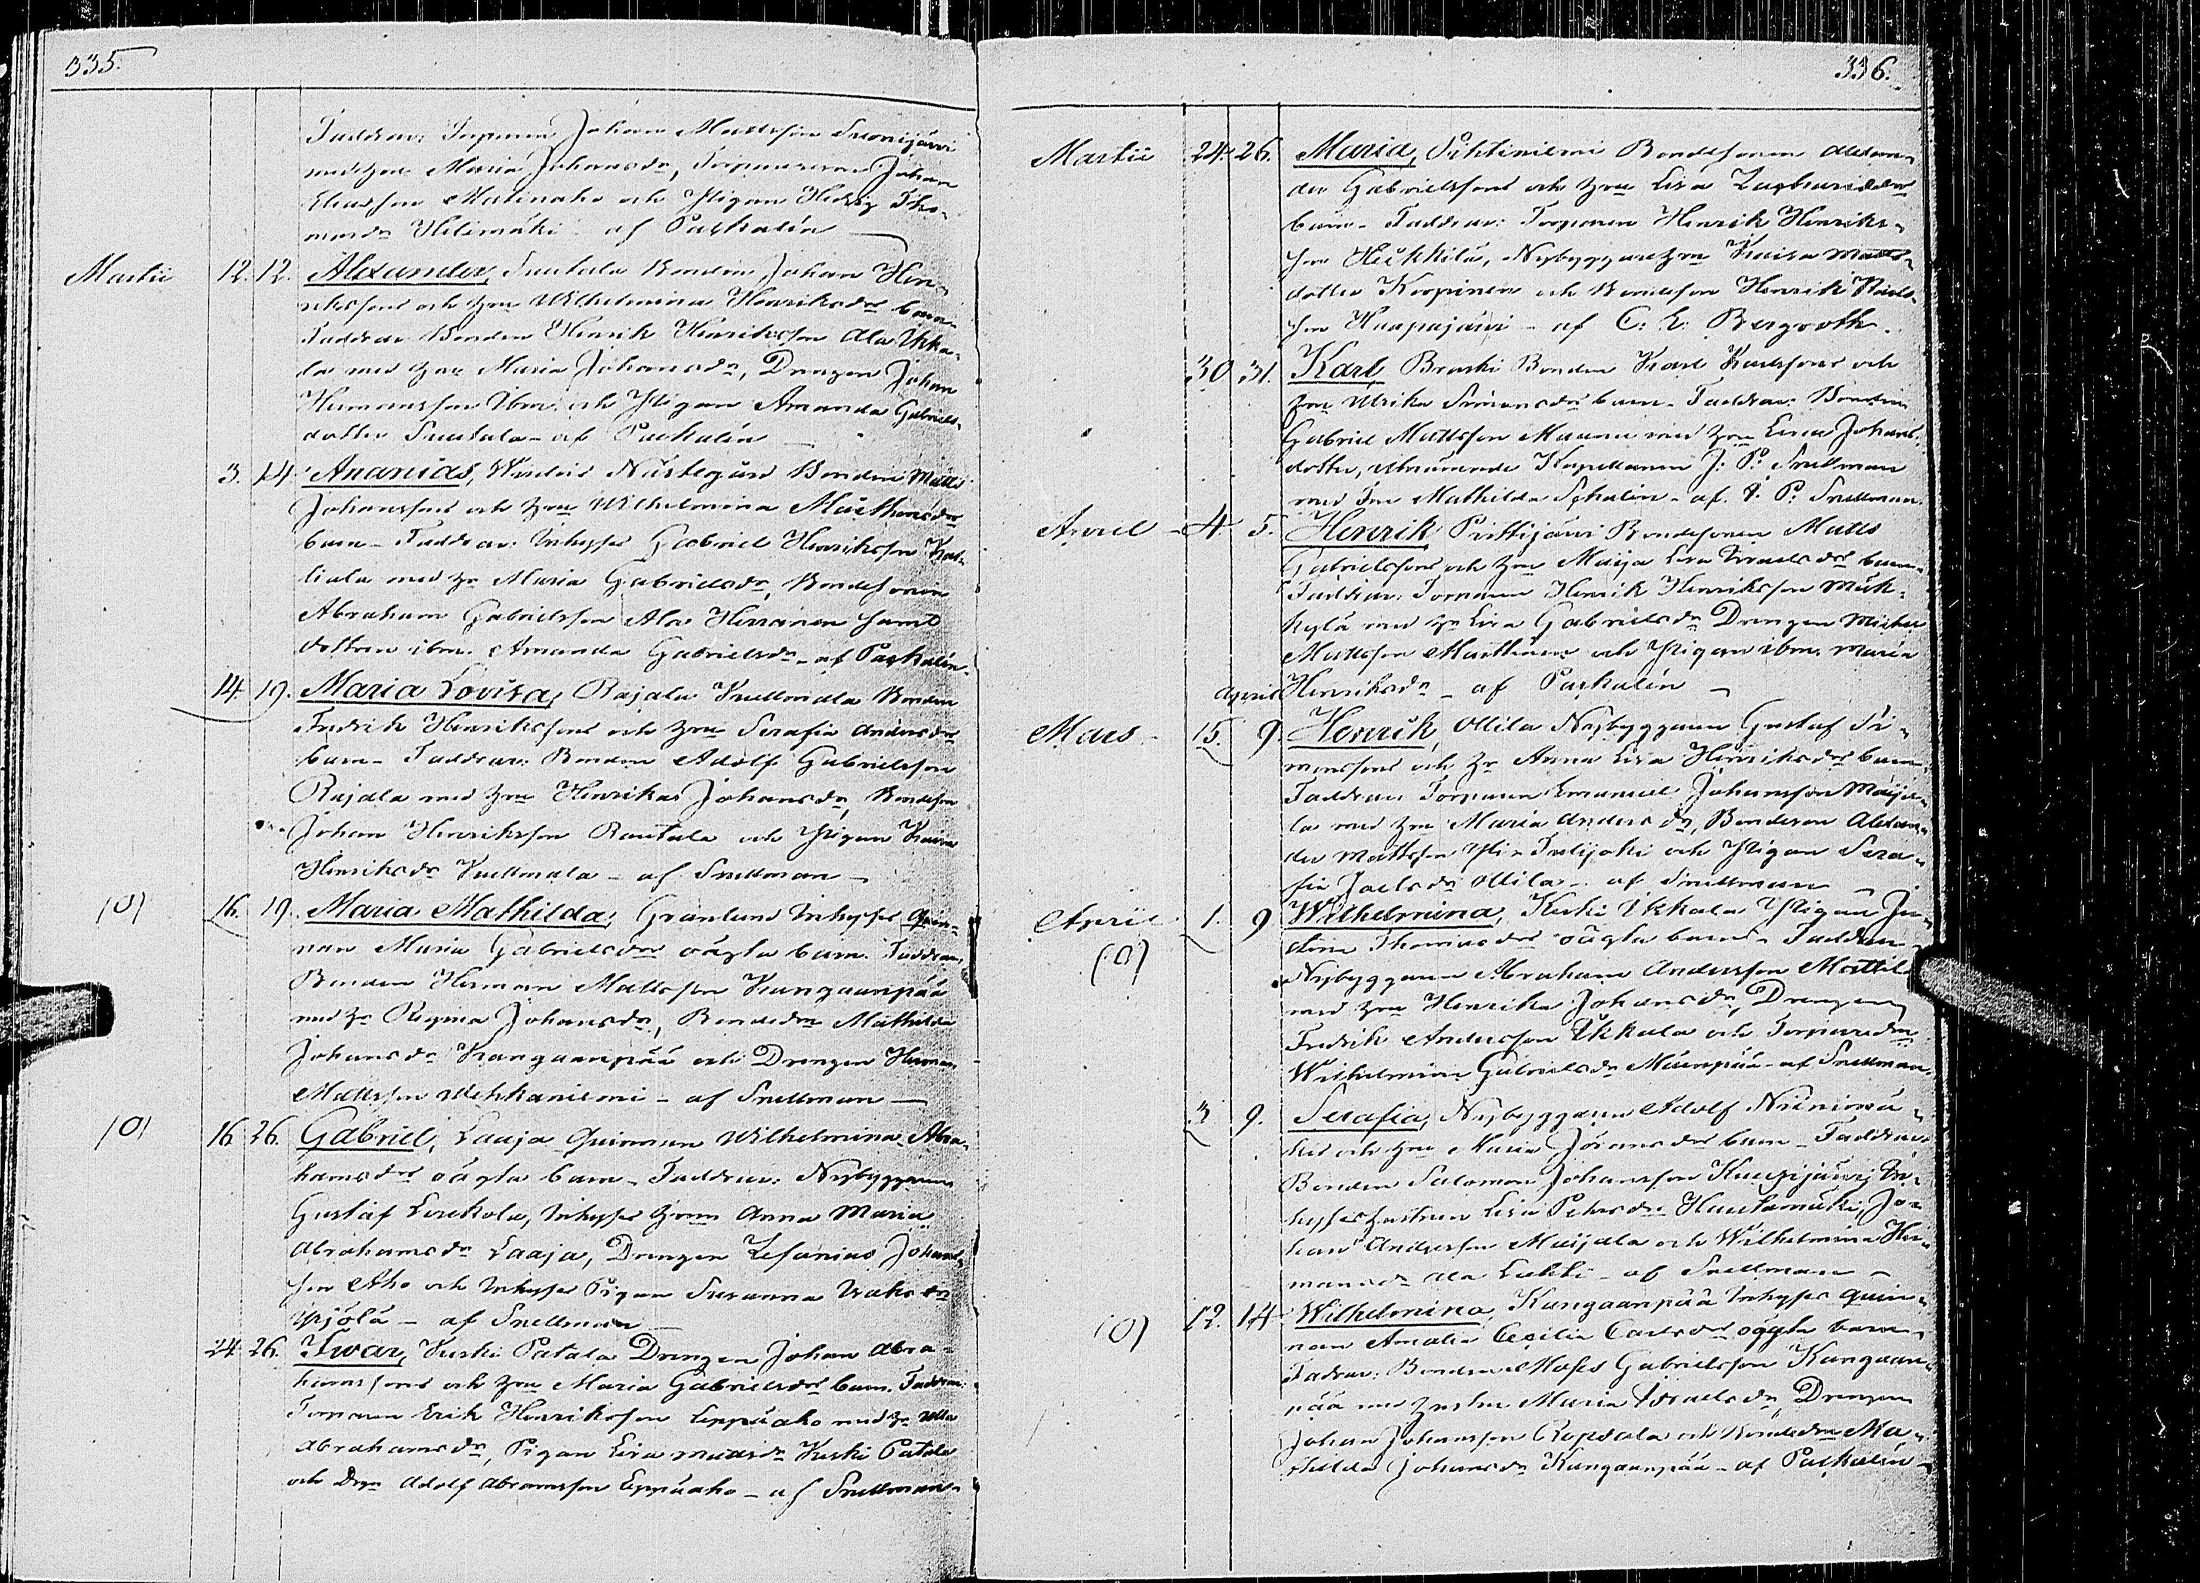 335.
Faddrar: Torparen Johan Mattsson Suonijärvi
med hu Maria Johansdr, Torparesonen Johan
Eliasson Matinaho och Pigan Hedvig Tho-
masdr Hilimäki af Paskalin
Martii 12. 12. Alexander, Sautala Bonden Johan Hen-
rikssons och hu Wilhelmina Henriksdrs barn
Faddrar Bonden Henrik Henriksson Ala Ukko-
la med hu Maria Johansdr, Drengen Johan
Hermansson ibm. och Pigan Amanda Gabriels-
dotter Sautala - af Paskalin
3. 14. Ananias, Nästegård Bonden Matts
Johanssons och hu Wilhelmina Matthsdrs
barn - Faddrar: Inhyses Gabriel Henriksson
med hu Maria Gabrielsdr, Bondesonen
Abraham Gabrielsson Ala Hirvinen samt
dottren ibm. Amanda Gabrielsdr - af Paskalin
14. 19. Maria Lovisa, Rajala Knellmala Bonden
Fredrik Henrikssons och hu Serafia Andersdrs
barn - Faddrar: Bonden Adolf Gabrielsson
Rajala med hu Henrika Johansdr, Bondeson
Johan Henriksson Rautala och Pigan Kaisa
Henriksdr Knellmala - af Snellman
(0) 16. 19. Maria Mathilda, Granlund Inhyses Quin-
nan Maria Gabrielsdrs oägta barn. Faddrar:
Bonden Herman Mattsson Kangaanpää
med hu Regina Johansdr, Bondedr Mathilda
Johansdr Kangaanpää och Drengen Herman
Mattsson Wehkaniemi - af Snellman
(0) 16 26. Gabriel, Laaja Quinnan Wilhelmina Abra-
hamsdrs oägta barn - Faddrar: Nybyggaren
Gustaf Leskola, Inhyses hu Anna Maria
Abrahamsdr Laaja, Drengen Zefanias Johans-
son Aho och Inhyses Pigan Susanna Isaksdr
- af Snellman
24. 26. Iwar, Keski Patala Drengen Johan Abra-
hamssons och hu Maria Gabrielsdrs barn. Faddrar:
Torparen Erik Henriksson Leppäaho med hu Ulla
Abrahamsdr, Pigan Lisa Mattsdr Keski Patala
och Drgn Adolf Abramsson Leppäaho - af Snellman
336.
Martii 24. 26. Maria, Bondesonen Alexan-
der Gabrielssons och hu Lisa Zachariedotters
barn - Faddrar: Torparen Henrik Henriks-
son Heikkilä, Nybyggarehu Kaisa Matts-
dotter Korpinen och Bondeson Henrik
son Haapajärvi - af C. E. Bergroth
30 31. Karl, Braski Bonden Karl Karlssons och
hu Ulrika Simonsdrs barn - Faddrar: Bonden
Gabriel Mattsson Maunu med hu Lena Johans-
dotter, Kapellanen J. P. Snellman
med Fru Mathilda Schalin - af J. P. Snellman
April 4. 5. Henrik, Pirttijärvi Bondesonen Matts
Gabrielssons och hu Maija Lisa Israelsdrs barn
Faddrar: Torparen Henrik Henriksson Mat-
kylä med hu Lisa Gabrielsdr Drengen Mickel
Mattsson Matkinen och Pigan ibm. Maria
Henriksdr - af Paskalin
April
Mars 15. 9. Henrik, Ollila Nybyggaren Gustaf Si-
monssons och hu Anna Lisa Henriksdrs barn
Faddrar Torparen Emanuel Johansson Maija-
la med hu Maria Andersdr, Bondeson Alexan-
der Mattsson Yli Tulijoki och Pigan Sera-
fia Joelsdr Ollila - af Snellman
April (0) 1. 9 Wilhelmina, Keski Ukkola Pigan Ju-
stina Thomasdrs oägta barn - Faddrar
Nybyggaren Abraham Andersson Mattila
med hu Henrika Johansdr, Drengen
Fredrik Andersson Ukkola och Torparedr
Wilhelmina Gabrielsdr Mäenpää - af Snellman
3 9. Serafia, Nybyggaren Adolf
och hu Maria Göransdrs barn - Faddrar:
Bonden Salomon Johansson Kuusijärvi, In-
hyses hustrun Lisa Petersdr Hautamäki, Jo-
han Andersson Maijala och Wilhelmina Her-
mansdr Ala Lahti - af Snellman
(0) 12. 14 Wilhelmina, Kangaanpää Inhyses Quin-
nan Amalia Cecilia Carlsdrs oägta barn
Fadrar: Bonden Moses Gabrielsson Kangaan-
pää med hustru Maria Israelsdr, Drengen
Johan Johansson Ropsala och Bondedr Ma-
thilda Johansdr Kangaanpää - af Paskalin